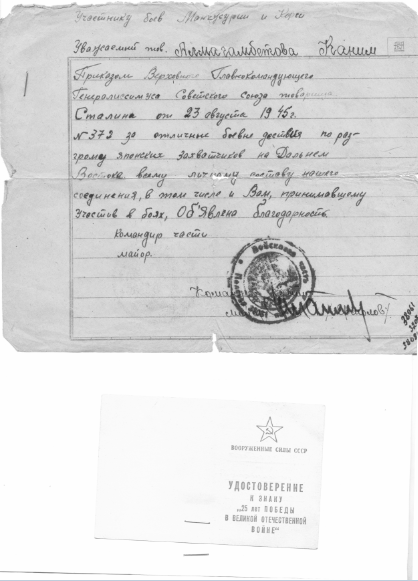 Участнику боев Манчжурии и Кореи
Уважаемый тов. Алмазамбетова Каним
Приказом Верховного Главнокомандующего
Генералиссимуса Советского Союза товарища
Сталина от 23 августа 1945г.
N 372 за отличные боевые действия по раз-
грому японских захватчиков на Дальнем
Востоке всему личному составу нашего
соединения, в том числе и Вам, принимавшему
участие в боях, Об'явлена благодарность
Командир части
майор.
ВООРУЖЕННЫЕ СИЛЫ СССР
УДОСТОВЕРЕНИЕ
К ЗНАКУ
„25 лет ПОБЕДЫ
В ВЕЛИКОЙ ОТЕЧЕСТВЕННОЙ
ВОЙНЕ“